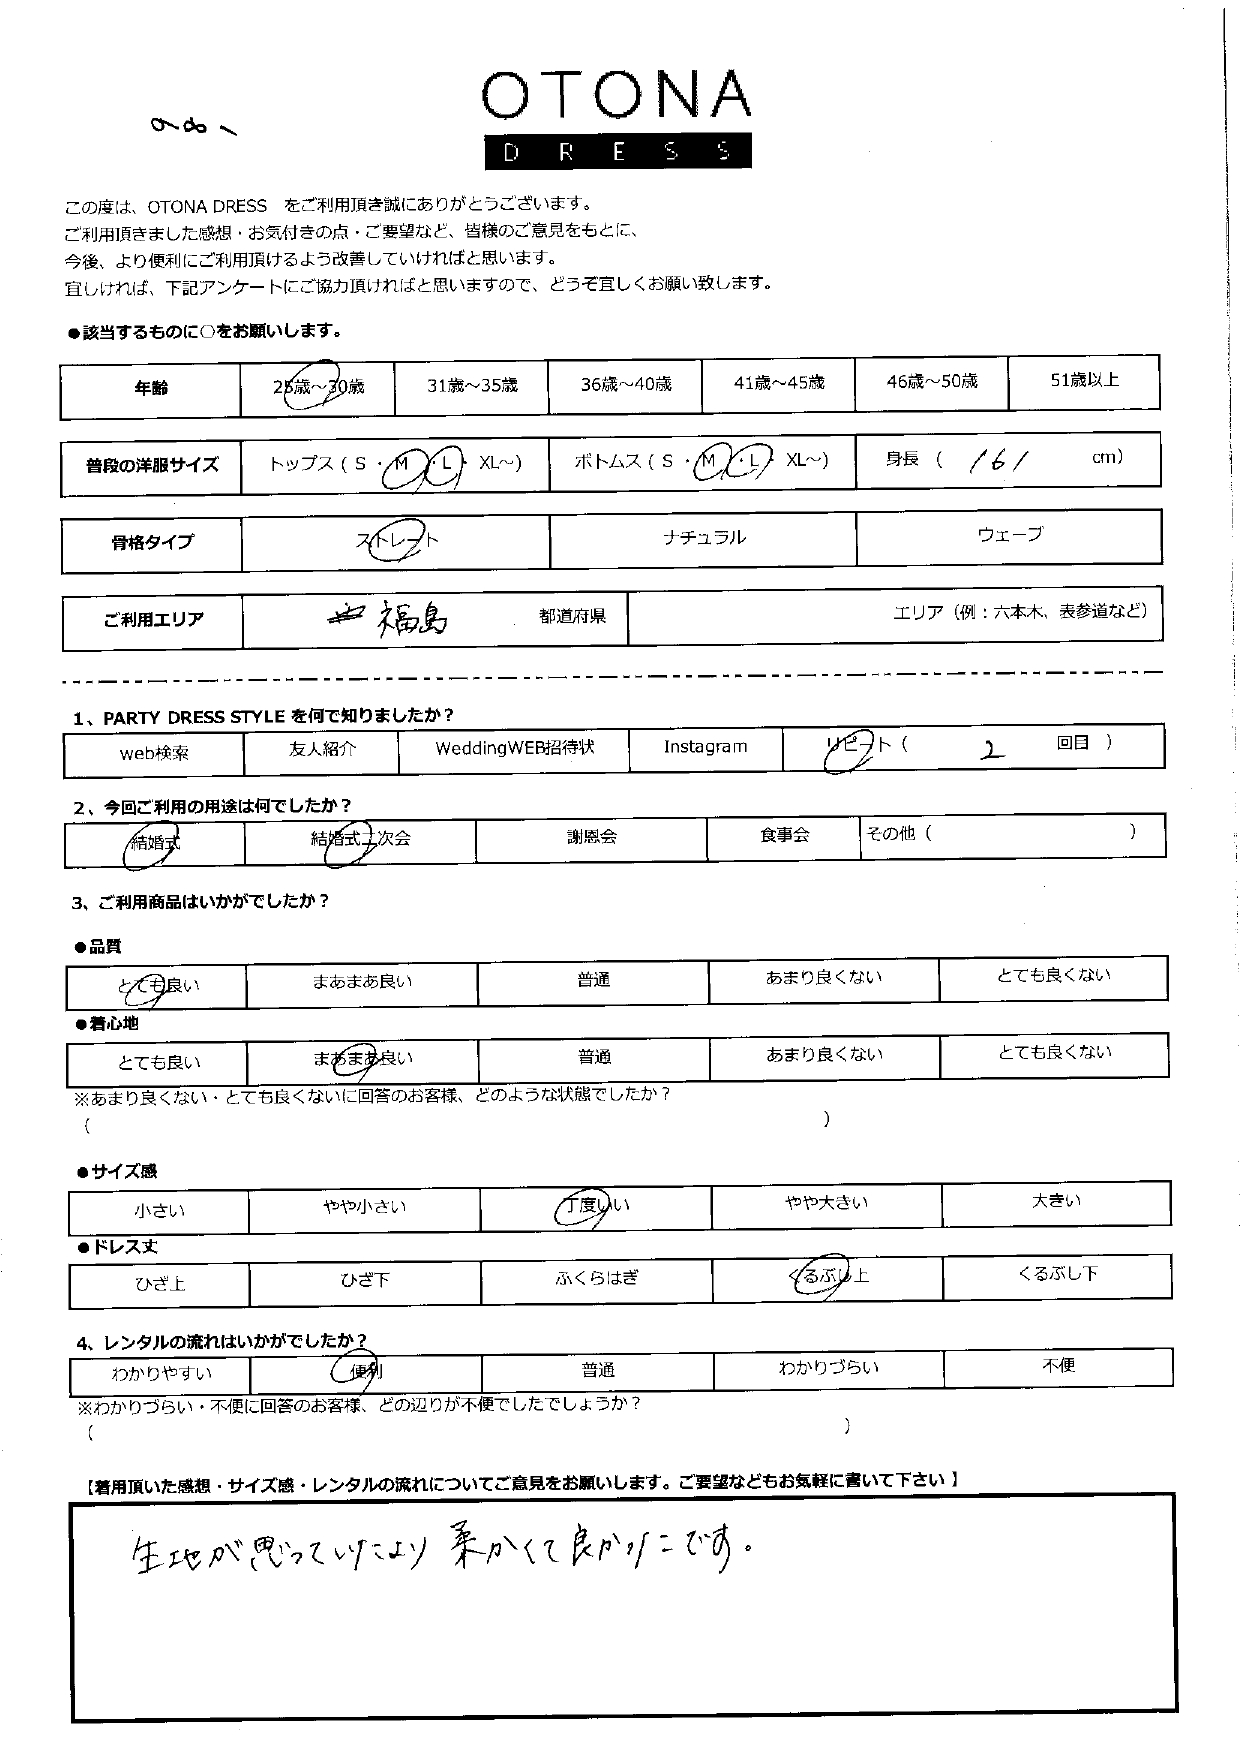 OTONA
DRESS
この度は、OTONA DRESS　をご利用頂き誠にありがとうございます。
ご利用頂きました感想・お気付きの点・ご要望など、皆様のご意見をもとに、
今後、より便利にご利用頂けるよう改善していければと思います。
宜しければ、下記アンケートにご協力頂ければと思いますので、どうぞ宜しくお願い致します。
●該当するものに○をお願いします。
年齢 25歳～30歳 31歳～35歳 36歳～40歳 41歳～45歳 46歳～50歳 51歳以上
普段の洋服サイズ トップス ( S ・ M ・ L ・ XL～) ボトムス ( S ・ M ・ L ・ XL～) 身長 ( 161 cm)
骨格タイプ ストレート ナチュラル ウェーブ
ご利用エリア 福島 都道府県 エリア（例：六本木、表参道など）
1、PARTY DRESS STYLE を何で知りましたか？
web検索 友人紹介 WeddingWEB招待状 Instagram リピート ( 2 回目 )
2、今回ご利用の用途は何でしたか？
結婚式 結婚式二次会 謝恩会 食事会 その他 ( )
3、ご利用商品はいかがでしたか？
●品質
とても良い まあまあ良い 普通 あまり良くない とても良くない
●着心地
とても良い まあまあ良い 普通 あまり良くない とても良くない
※あまり良くない・とても良くないに回答のお客様、どのような状態でしたか？
( )
●サイズ感
小さい やや小さい 丁度いい やや大きい 大きい
●ドレス丈
ひざ上 ひざ下 ふくらはぎ くるぶし上 くるぶし下
4、レンタルの流れはいかがでしたか？
わかりやすい 便利 普通 わかりづらい 不便
※わかりづらい・不便に回答のお客様、どの辺りが不便でしたでしょうか？
( )
【着用頂いた感想・サイズ感・レンタルの流れについてご意見をお願いします。ご要望などもお気軽に書いて下さい 】
生地が思っていたより柔かくて良かったです。